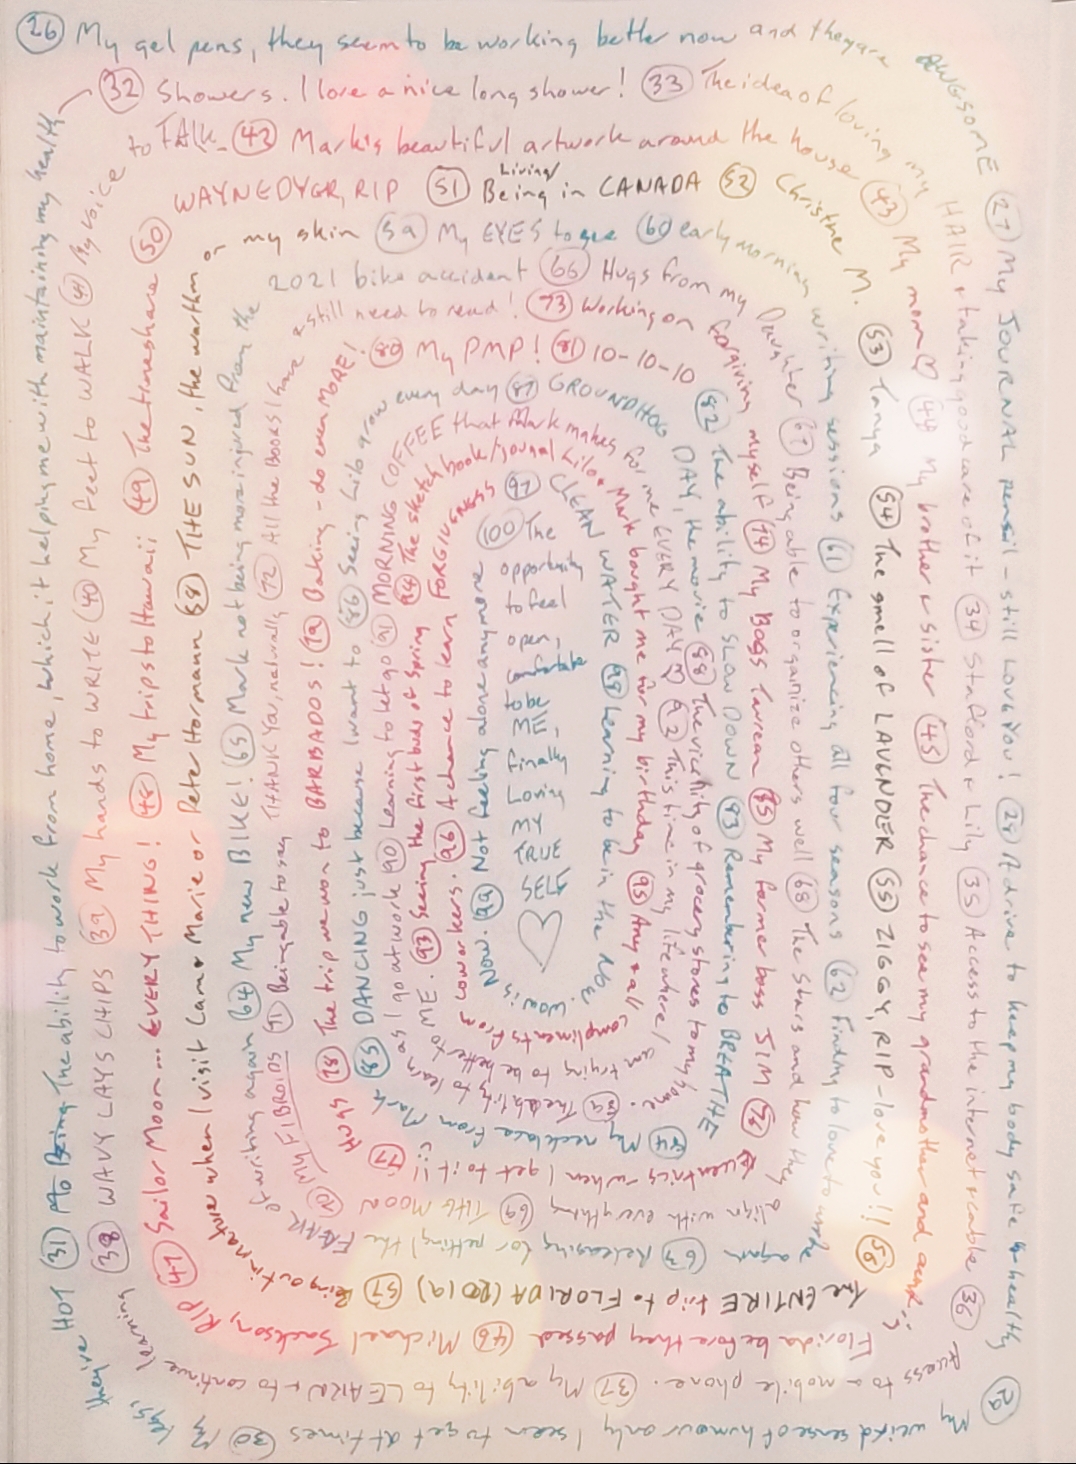 26 My gel pens, they seem to be working better now and they are AWESOME
27 My JOURNAL pencil - still LOVE YOU!
28 A drive to keep my body safe & healthy
29 My weird sense of humour only I seem to get at times
30 My legs, they're HOT
31 The ability to work from home, which it helping me with maintaining my health
32 Showers. I love a nice long shower!
33 The idea of loving my HAIR & taking good care of it
34 Stafford & Lily
35 Access to the internet & cable
36 Access to a mobile phone.
37 My ability to LEARN & to continue learning
38 WAVY LAYS CHIPS
39 My hands to WRITE
40 My feet to WALK
41 My voice to TALK.
42 Mark's beautiful artwork around the house
43 My mom ♡
44 My brother & sister
45 The chance to see my grandmother and aunt in Florida before they passed
46 Michael Jackson, RIP
47 Sailor Moon... EVERYTHING!
48 My trips to Hawaii
49 The timeshare
50 WAYNE DYER, RIP
51 Living/ Being in CANADA
52 Christine M.
53 Tanya
54 The smell of LAVENDER
55 ZIGGY, RIP - love you!!
56 The ENTIRE trip to FLORIDA (2019)
57 Being out in nature when I visit Cam & Marie or Peter Hormann
58 THE SUN, the warthm on my skin
59 My EYES to see
60 early morning writing sessions
61 Experiencing all four seasons
62 Finding to love to write again
63 Releasing (or petting) the FEAR of writing again
64 My new BIKE!
65 Mark not being more injured from the 2021 bike accident
66 Hugs from my Daughter
67 Being able to organize others well
68 The stars and how they align with everything
69 THE MOON
70 MY FIBROIDS
71 Being able to say THANK You, naturally
72 All the Books I have & still need to read!
73 Working on forgiving myself
74 My Boss
75 My former boss JIM
76 Essentrics - when I get to it!!
77 HUGS
78 The trip we won to BARBADOS!
79 Baking - do even MORE!
80 My PMP!
81 10-10-10
82 The ability to SLOW DOWN
83 Remembering to BREATHE
84 My necklace from Mark
85 DANCING just because I want to
86 Seeing Lilo grow every day
87 GROUNDHOG DAY, the movie
88 The vicinity of grocery stores to my home.
89 The ability to learn as I go at work
90 Learning to let go
91 MORNING COFFEE that Mark makes for me EVERY DAY ♡
92 This time in my life where I am trying to be better to ME.
93 Seeing the first buds of Spring
94 The sketch book/journal Lilo & Mark bought me for my birthday
95 Any & all compliments from coworkers.
96 A chance to learn FORGIVENESS
97 CLEAN WATER
98 Learning to be in the NOW. Wow is NOW.
99 Not feeling alone anymore
100 The
opportunity
to feel
open,
comfortable
to be
ME,
finally
Loving
MY
TRUE
SELF